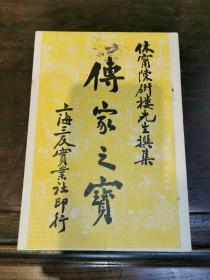 休甯陳研樓先生撰集
傳家之寶
上海三友實業社印行